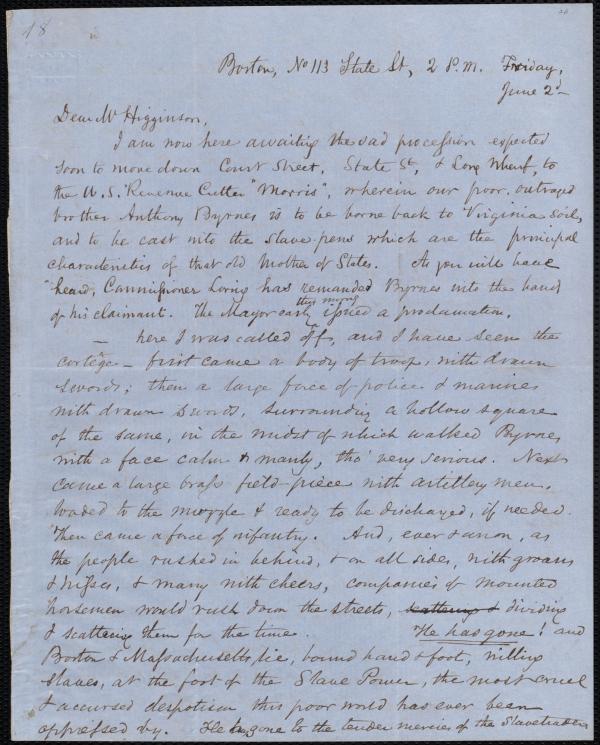 18
Boston, No 113 State St, 2 P.M. Friday,
June 2d
Dear Mr Higginson,
I am now here awaiting the sad procession expected
soon to move down Court Street, State St, & Long Wharf, to
the U.S. "Revenue Cutter "Morris", wherein our poor, outraged
brother Anthony Byrnes is to be borne back to Virginia soil,
and to be cast into the slave pens which are the principal
characteristics of that old Mother of States. As you will have
heard, Commissioner Loring has remanded Byrnes into the hand
of his claimant. The Mayor early this morng issued a proclamation,
— here I was called off, and I have seen the
cortège — first came a body of troops, with drawn
swords; then a large force of police & marines
with drawn swords, surrounding a hollow square
of the same, in the midst of which walked Byrnes
with a face calm & manly, tho' very serious. Next
came a large brass field-piece with artillery men,
loaded to the muzzle & ready to be discharged, if needed.
Then came a force of infantry. And, ever & anon, as
the people rushed in behind, & on all sides, with groans
& hisses, & many with cheers, companies of mounted
horsemen would rush down the streets, scattering & dividing
& scattering them for the time. He has gone! and
Boston & Massachusetts lie, bound hand & foot, willing
slaves, at the foot of the Slave Power, the most cruel
& accursed despotism this poor world has ever been
oppressed by. He has gone to the tender mercies of the Slavetraders